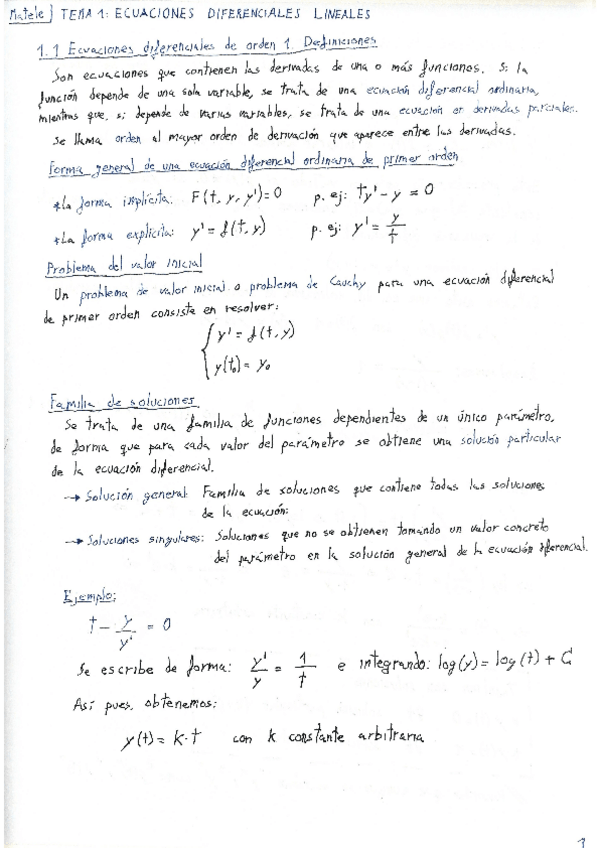 Matele) TEMA 1: ECUACIONES DIFERENCIALES LINEALES
1.1 Ecuaciones diferenciales de orden 1. Definiciones
Son ecuaciones que contienen las derivadas de una o más funciones. Si la
función depende de una sola variable, se trata de una ecuación diferencial ordinaria,
mientras que, si depende de varias variables, se trata de una ecuación en derivadas parciales.
Se llama orden al mayor orden de derivación que aparece entre las derivadas.
Forma general de una ecuación diferencial ordinaria de primer orden
*La forma implícita: F(t, y, y')=0 p. ej: ty' - y = 0
*La forma explícita: y' = f(t, y) p. ej: y' = y/t
Problema del valor inicial
Un problema de valor inicial o problema de Cauchy para una ecuación diferencial
de primer orden consiste en resolver:
{ y' = f(t, y)
y(t₀) = y₀
Familia de soluciones
Se trata de una familia de funciones dependientes de un único parámetro,
de forma que para cada valor del parámetro se obtiene una solución particular
de la ecuación diferencial.
→ Solución general: Familia de soluciones que contiene todas las soluciones
de la ecuación:
→ Soluciones singulares: Soluciones que no se obtienen tomando un valor concreto
del parámetro en la solución general de la ecuación diferencial.
Ejemplo:
t - y/y' = 0
Se escribe de forma: y'/y = 1/t e integrando: log(y) = log(t) + C
Así pues, obtenemos:
y(t) = k·t con k constante arbitraria
1